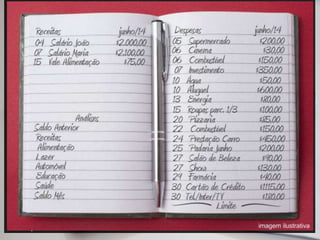 Receitas junho/14
04 Salário João R$2.000,00
07 Salário Maria R$2.100,00
15 Vale Alimentação R$75,00
Análises
Saldo Anterior
Receitas
Alimentação
Lazer
Automóvel
Educação
Saúde
Saldo Mês
Despesas junho/14
05 Supermercado R$200,00
06 Cinema R$30,00
06 Combustível R$150,00
07 Investimento R$350,00
10 Água R$50,00
10 Aluguel R$600,00
13 Energia R$80,00
15 Roupas parc. 1/3 R$100,00
20 Pizzaria R$85,00
22 Combustível R$150,00
24 Prestação Carro R$450,00
25 Padaria Junho R$200,00
27 Salão de Beleza
27 Show R$130,00
29 Farmácia
30 Cartão de Crédito R$1115,00
30 Tel/Inter/TV
Limite
imagem ilustrativa